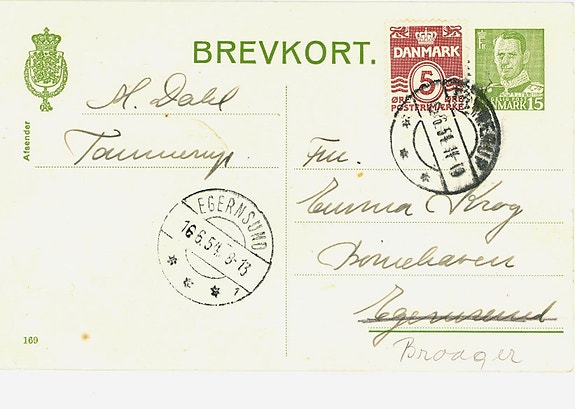 BREVKORT.
DANMARK
5
ØRE ØRE
POSTFRIMÆRKE
DANMARK 15
Afsender
M. Dahl
Tannerup.
EGERNSUND
16.6.54. 8-13
1
Fru.
Emma Krog
Egernsund
Broager
169